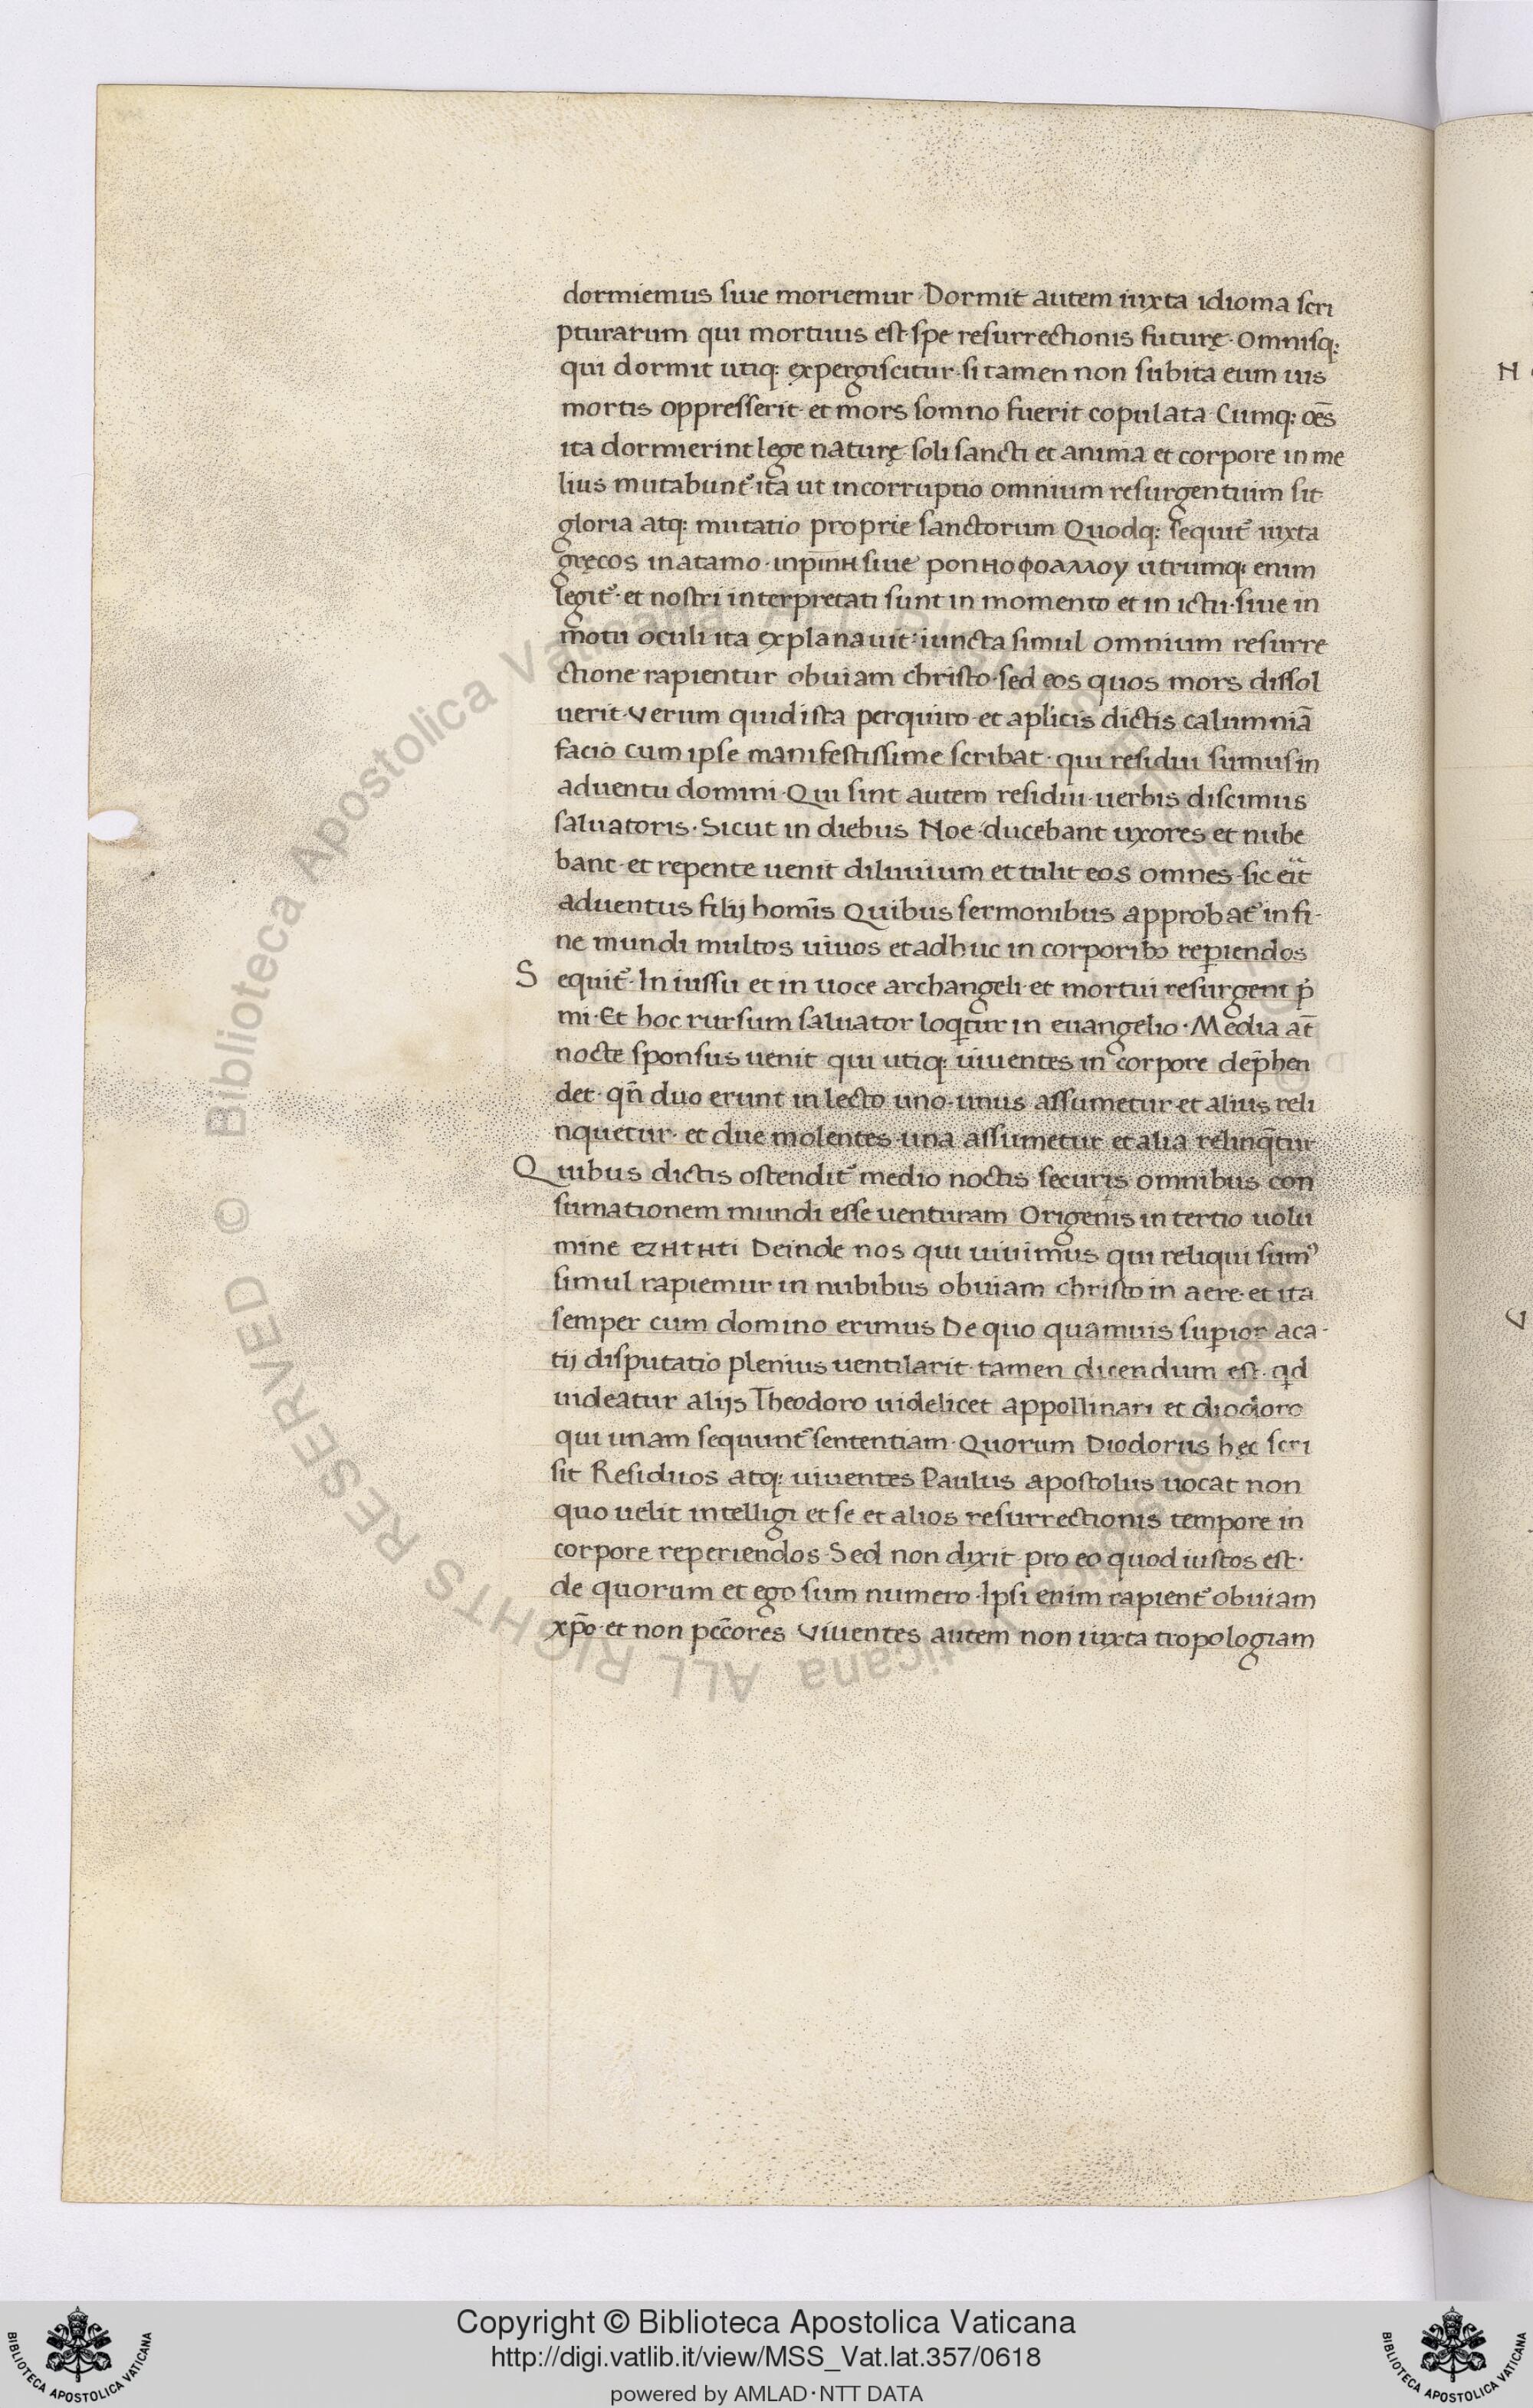 dormiemus siue moriemur Dormit autem iuxta idioma scri
pturarum qui mortuus est·spe resurrectionis futurę·Omnisq;
qui dormit utiq; expergiscitur·si tamen non subita eum uis
mortis oppresserit·et mors somno fuerit copulata·Cumq; oēs
ita dormierint lege naturę·soli sancti et anima et corpore in me
lius mutabunt᷑·ita ut incorruptio omnium resurgentium sit
gloria atq; mutatio proprie sanctorum Quodq; sequit᷑ iuxta
gręcos inatamo·inpīnн siue ponнoφoαλλoy utrumq; enim
legit᷑·et nostri interpretati sunt in momento et in ictu·siue in
motu oculi ita explanauit·iuncta simul omnium resurre
ctione rapientur obuiam christo·sed eos quos mors dissol
uerit·Verum quid ista perquiro·et aplicis dictis calumniā
facio cum ipse manifestissime scribat·qui residui sumus in
aduentu domini·Qui sint autem residui·uerbis discimus
saluatoris·Sicut in diebus Noe·ducebant uxores et nube
bant·et repente uenit diluuium et tulit eos omnes·sic eīt
aduentus filij homīs Quibus sermonibus approbat᷑ in fi-
ne mundi multos uiuos et adhuc in corporibꝰ repiendos
S equit᷑·In iussu et in uoce archangeli·et mortui resurgent p̓
mi·Et hoc rursum saluator loqt̄ur in euangelio·Media at̄
nocte sponsus uenit qui utiq; uiuentes in corpore dep̄hen
det·qn̄ duo erunt in lecto uno·unus assumetur et alius reli
nquetur·et due molentes·una assumetur et alia relinqt̄ur
Q uibus dictis ostendit᷑ medio noctis securis omnibus con
sumationem mundi esse uenturam Origenis in tertio uolu
mine eznтнтi Deinde nos qui uiuimus qui reliqui sumꝰ
simul rapiemur in nubibus obuiam christo in aere·et ita
semper cum domino erimus De quo quamuis supior aca-
tij disputatio plenius uentilarit·tamen dicendum est·qd
uideatur alijs Theodoro uidelicet appollinari et diodoro
qui unam sequunt᷑ sententiam·Quorum Diodorus hęc scri
sit Residuos atq; uiuentes Paulus apostolus uocat non
quo uelit intelligi et se et alios resurrectionis tempore in
corpore reperiendos·Sed non dixit pro eo quod iustos est·
de quorum et ego sum numero·Ipsi enim rapient᷑ obuiam
xp̄o·et non pec̄cores Viuentes autem non iuxta tropologiam
N
V
© Biblioteca Apostolica Vaticana ALL RIGHTS RESERVED
Copyright © Biblioteca Apostolica Vaticana
http://digi.vatlib.it/view/MSS_Vat.lat.357/0618
powered by AMLAD·NTT DATA
BIBLIOTECA APOSTOLICA VATICANA
BIBLIOTECA APOSTOLICA VATICANA